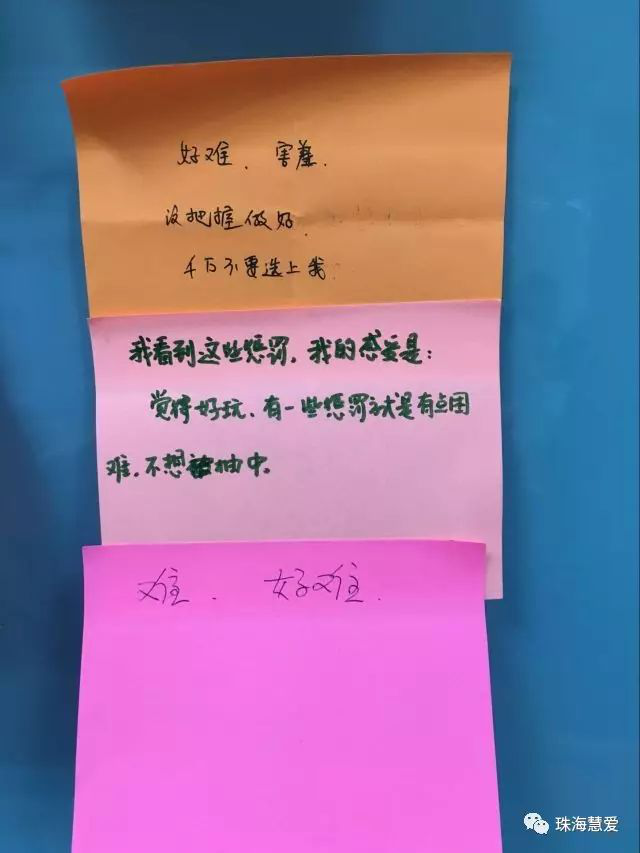 好难、害羞.
没把握做好.
千万不要选上我.
我看到这些惩罚,我的感受是:
觉得好玩、有一些惩罚就是有点困
难,不想被抽中。
难、好难.
珠海慧爱